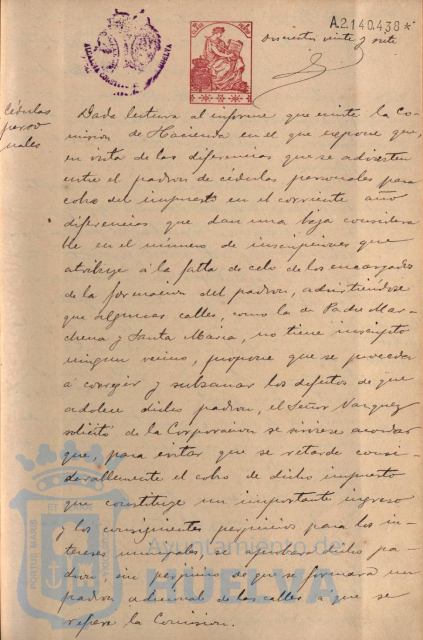 A.2.140.438 *
doscientos veinte y siete
ALCALDIA CONSTITUCIONAL HUELVA
Cédulas
perso
nales
Dada lectura al informe que emite la Co-
misión de Hacienda en el que expone que,
en vista de las diferencias que se advierten
entre el padron de cédulas personales para
cobro del impuesto en el corriente año
diferencias que dan una baja considera
ble en el número de inscripciones que
atribuye á la falta de celo de los encargados
de la formacion del padron, advirtiendose
que algunas calles, como la de Padre Mar-
chena y Santa Maria, no tiene inscripto
ningun vecino, propone que se proceda
á corregir y subsanar los defectos de que
adolece dicho padron, el Señor Vazquez
solicitó de la Corporacion se sirviese acordar
que, para evitar que se retarde consi-
derablemente el cobro de dicho impuesto
que constituye un importante ingreso
y los consiguientes perjuicios para los in-
tereses municipales se apruebe dicho pa-
dron sin perjuicio de que se formara un
padron adicional de las calles á que se
refiere la Comision.
PORTUS MARIS ET
Ayuntamiento de
HUELVA